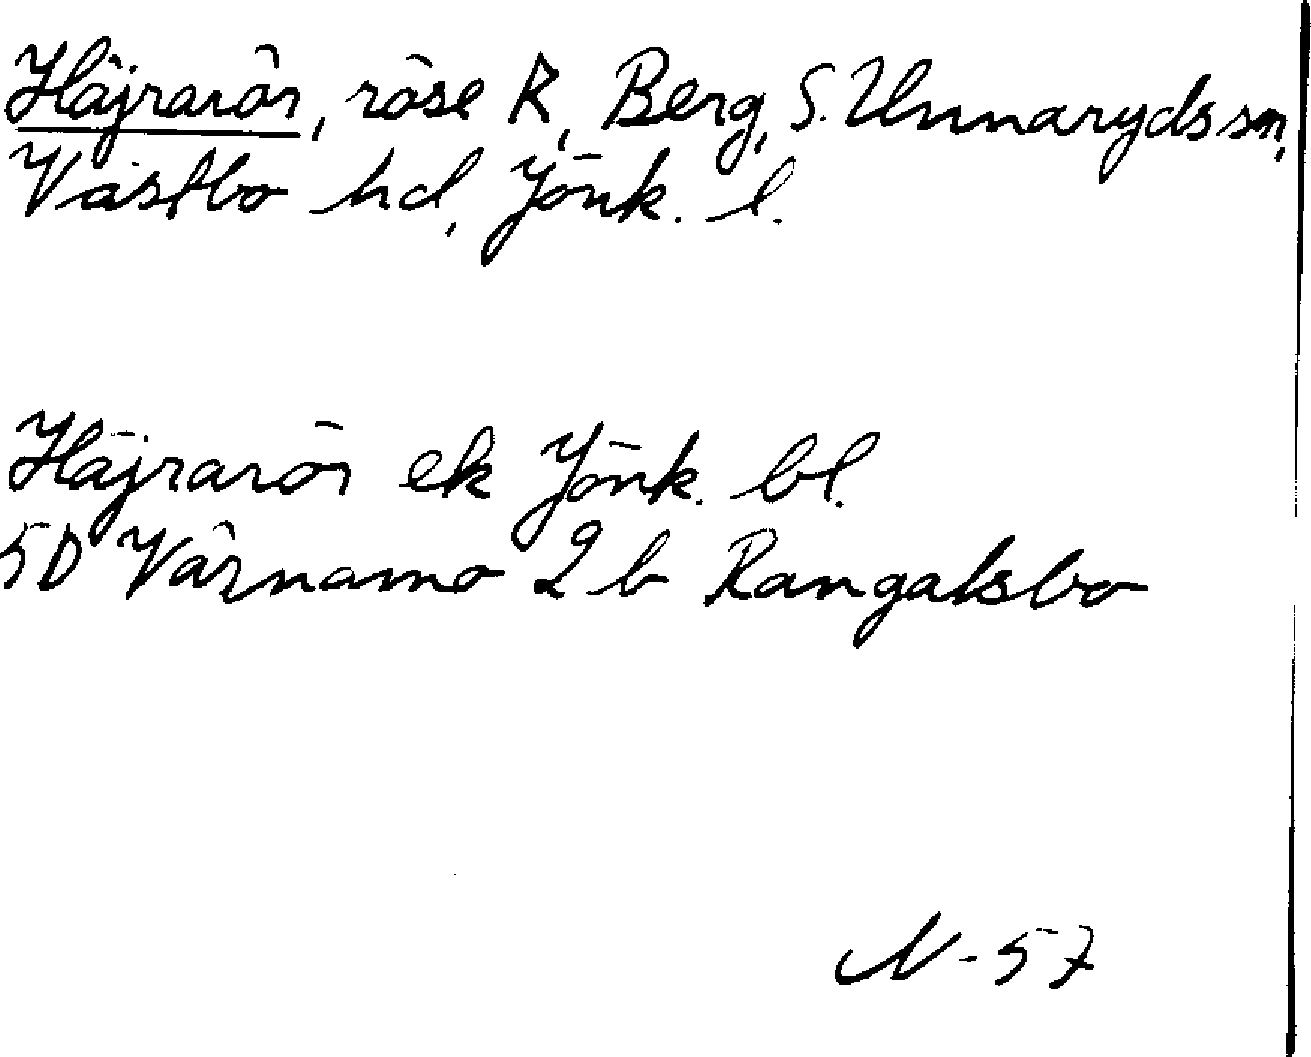 Häjrarör, röse R, Berg, S. Unnaryds sn,
Västbo hd, Jönk. l.
Häjrarör ek Jönk. bl.
5D Värnamo 2 b Rangalsbo
N-57